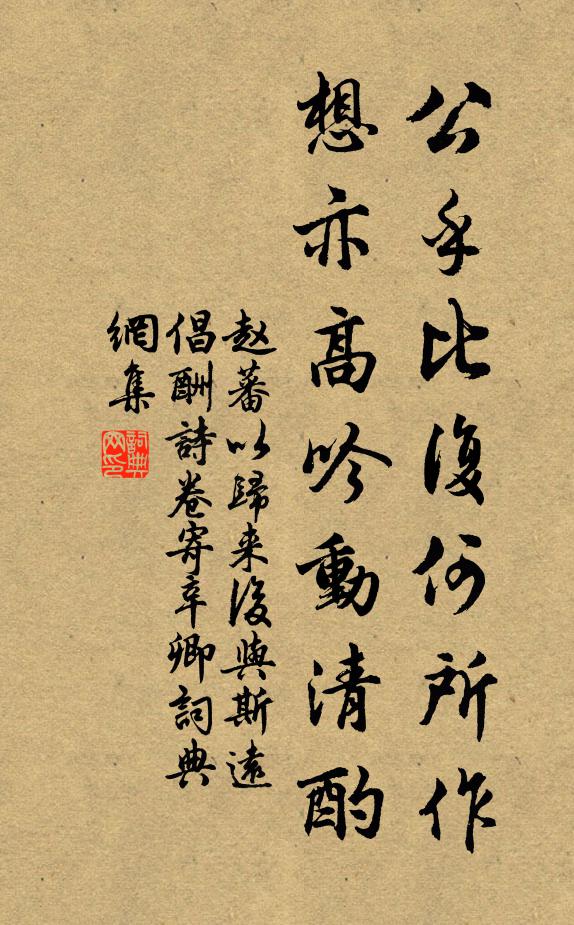 公乎比復何所作
想亦高吟動清酌
赵蕃以歸来後與斯遠
倡酬詩卷寄辛卿詞典
網集
詞典網印